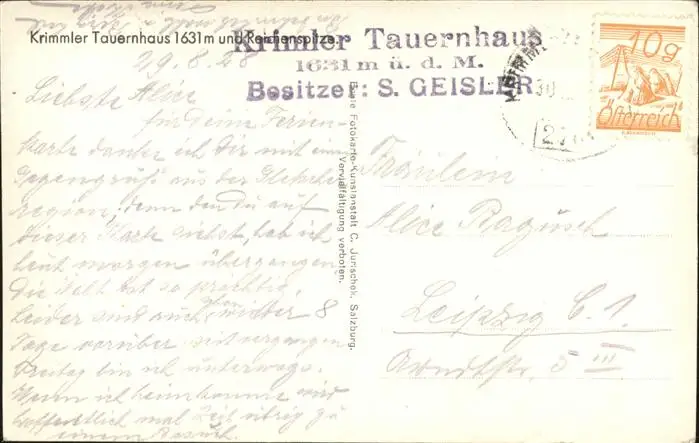 Krimmler Tauernhaus 1631 m und Reichenspitze.
Krimler Tauernhaus
1631 m ü. d. M.
Besitzer: S. GEISLER
10 g
Österreich
29.8.28
Liebste Alice
für Deine Ferien-
karte danke ich Dir mit einem
Gegengruß aus der Gletscher
region, denn den Du auf
dieser Karte siehst, hab ich
heut morgen übergangen.
Die Welt ist so prächtig.
Leider sind auch schon wieder 8
Tage vorüber seit vergangen
Freitag bin ich unterwegs.
Wenn ich heimkomme wird
hoffentlich mal Zeit übrig zu
einem Besuch.
Echte Fotokarte-Kunstanstalt C. Jurischek, Salzburg.
Vervielfältigung verboten.
Fräulein
Alice
Leipzig C. 1
Arndtstr. 5 III